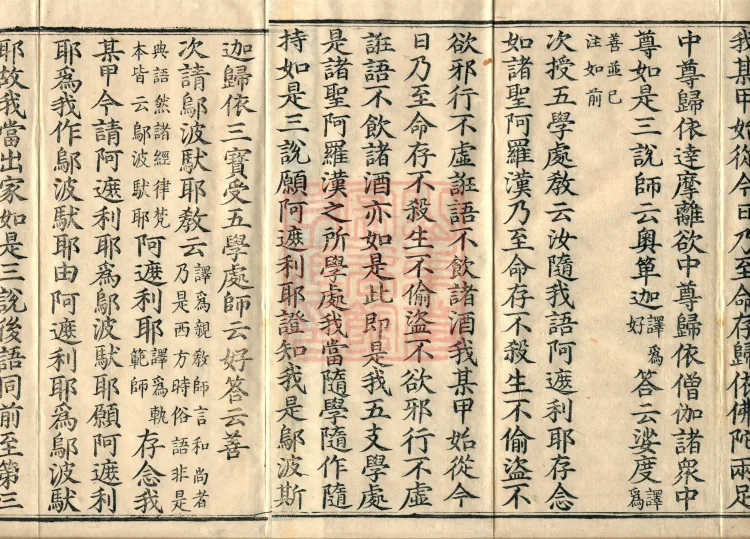 我某甲始從今日乃至命存歸依佛陁兩足
中尊歸依達摩離欲中尊歸依僧伽諸衆中
尊如是三說師云奥箄迦譯爲好答云娑度譯爲
善並已注如前
次授五學處敎云汝隨我語阿遮利耶存念
如諸聖阿羅漢乃至命存不殺生不偷盜不
欲邪行不虛誑語不飲諸酒我某甲始從今
日乃至命存不殺生不偷盜不欲邪行不虛
誑語不飲諸酒亦如是此即是我五支學處
是諸聖阿羅漢之所學處我當隨學隨作隨
持如是三說願阿遮利耶證知我是鄔波斯
迦歸依三寶受五學處師云好答云善
次請鄔波馱耶敎云譯爲親敎師言和尚者乃是西方時俗語非是
典語然諸經律梵本皆云鄔波馱耶阿遮利耶譯爲軌範師存念我
某甲今請阿遮利耶爲鄔波馱耶願阿遮利
耶爲我作鄔波馱耶由阿遮利耶爲鄔波馱
耶故我當出家如是三說後語同前至第三